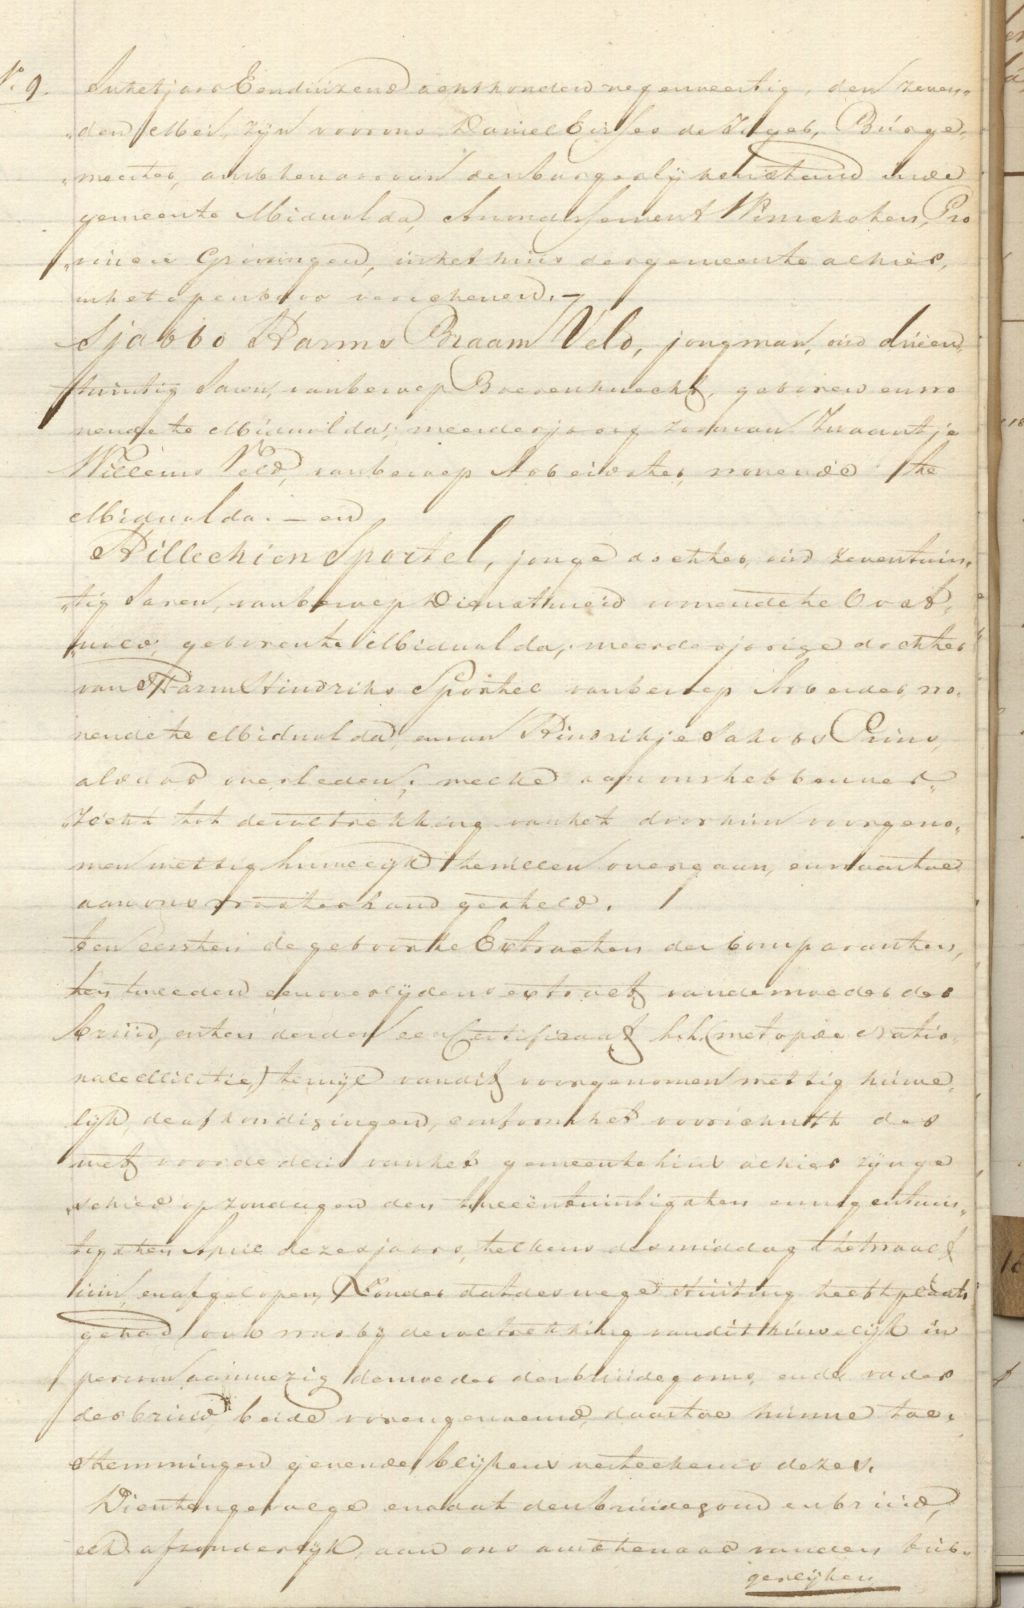 No 9. In het jaar Eenduizend achthonderd negenveertig, den zeven-
„den Mei, zijn voor ons Daniel de Burge-
„meester, ambtenaar van den burgerlijken stand in de
gemeente Midwolda, Arrondissement Winschoten, Pro
„vincie Groningen, in het huis der gemeente alhier,
in het openbaar verschenen. —
Sjabbo Harms Braam Veld, jongman, oud drieen-
twintig Jaren, van beroep Boerenknecht, geboren en wo
nende te Midwolda, meerderjarig zoon van Zwaantje
Willems Veld, van beroep Arbeidster, wonende te
Midwolda. — en
Hillechien Sportel, jonge dochter, oud zeventwin-
„tig Jaren, van beroep Dienstmeid wonende te Oost-
„wold, geboren te Midwolda, meerderjarige dochter
van Harm Hindriks Sportel van beroep Arbeider wo-
nende te Midwolda, en van Hindrikje Jakobs Prins,
aldaar overleden; welke aan ons hebben ver-
„zocht tot de voltrekking van het door hun voorgeno-
men wettig huwelijk te willen overgaan, en daartoe
aan ons ter hand gesteld.
ten eersten de geboorte Extracten der Comparanten,
ten tweeden een overlijdens extract van de moeder der
bruid, en ten derden een Certificaat h.h. (wet op de Natio-
nale Militie,) terwijl van dit voorgenomen wettig huwe-
lijk, de afkondigingen, conform het voorschrift der
wet voor de deur van het gemeentehuis alhier zijn ge
„schied op zondagen den tweeentwintigsten en negentwin-
tigsten April dezes jaars, telkens des middags te twaalf
uur, en afgelopen, zonder dat deswege stuiting heeft plaats
gehad, ook was bij de voltrekking van dit huwelijk in
persoon aanwezig de moeder des bruidegoms, en de vader
der bruid, beide voorengenoemd, daartoe hunne toe-
stemmingen gevende, blijkens verteekenis dezes.
Dientengevolge en nadat den bruidegom en bruid,
elk afzonderlijk, aan ons ambtenaar van den bur-
gerlijken